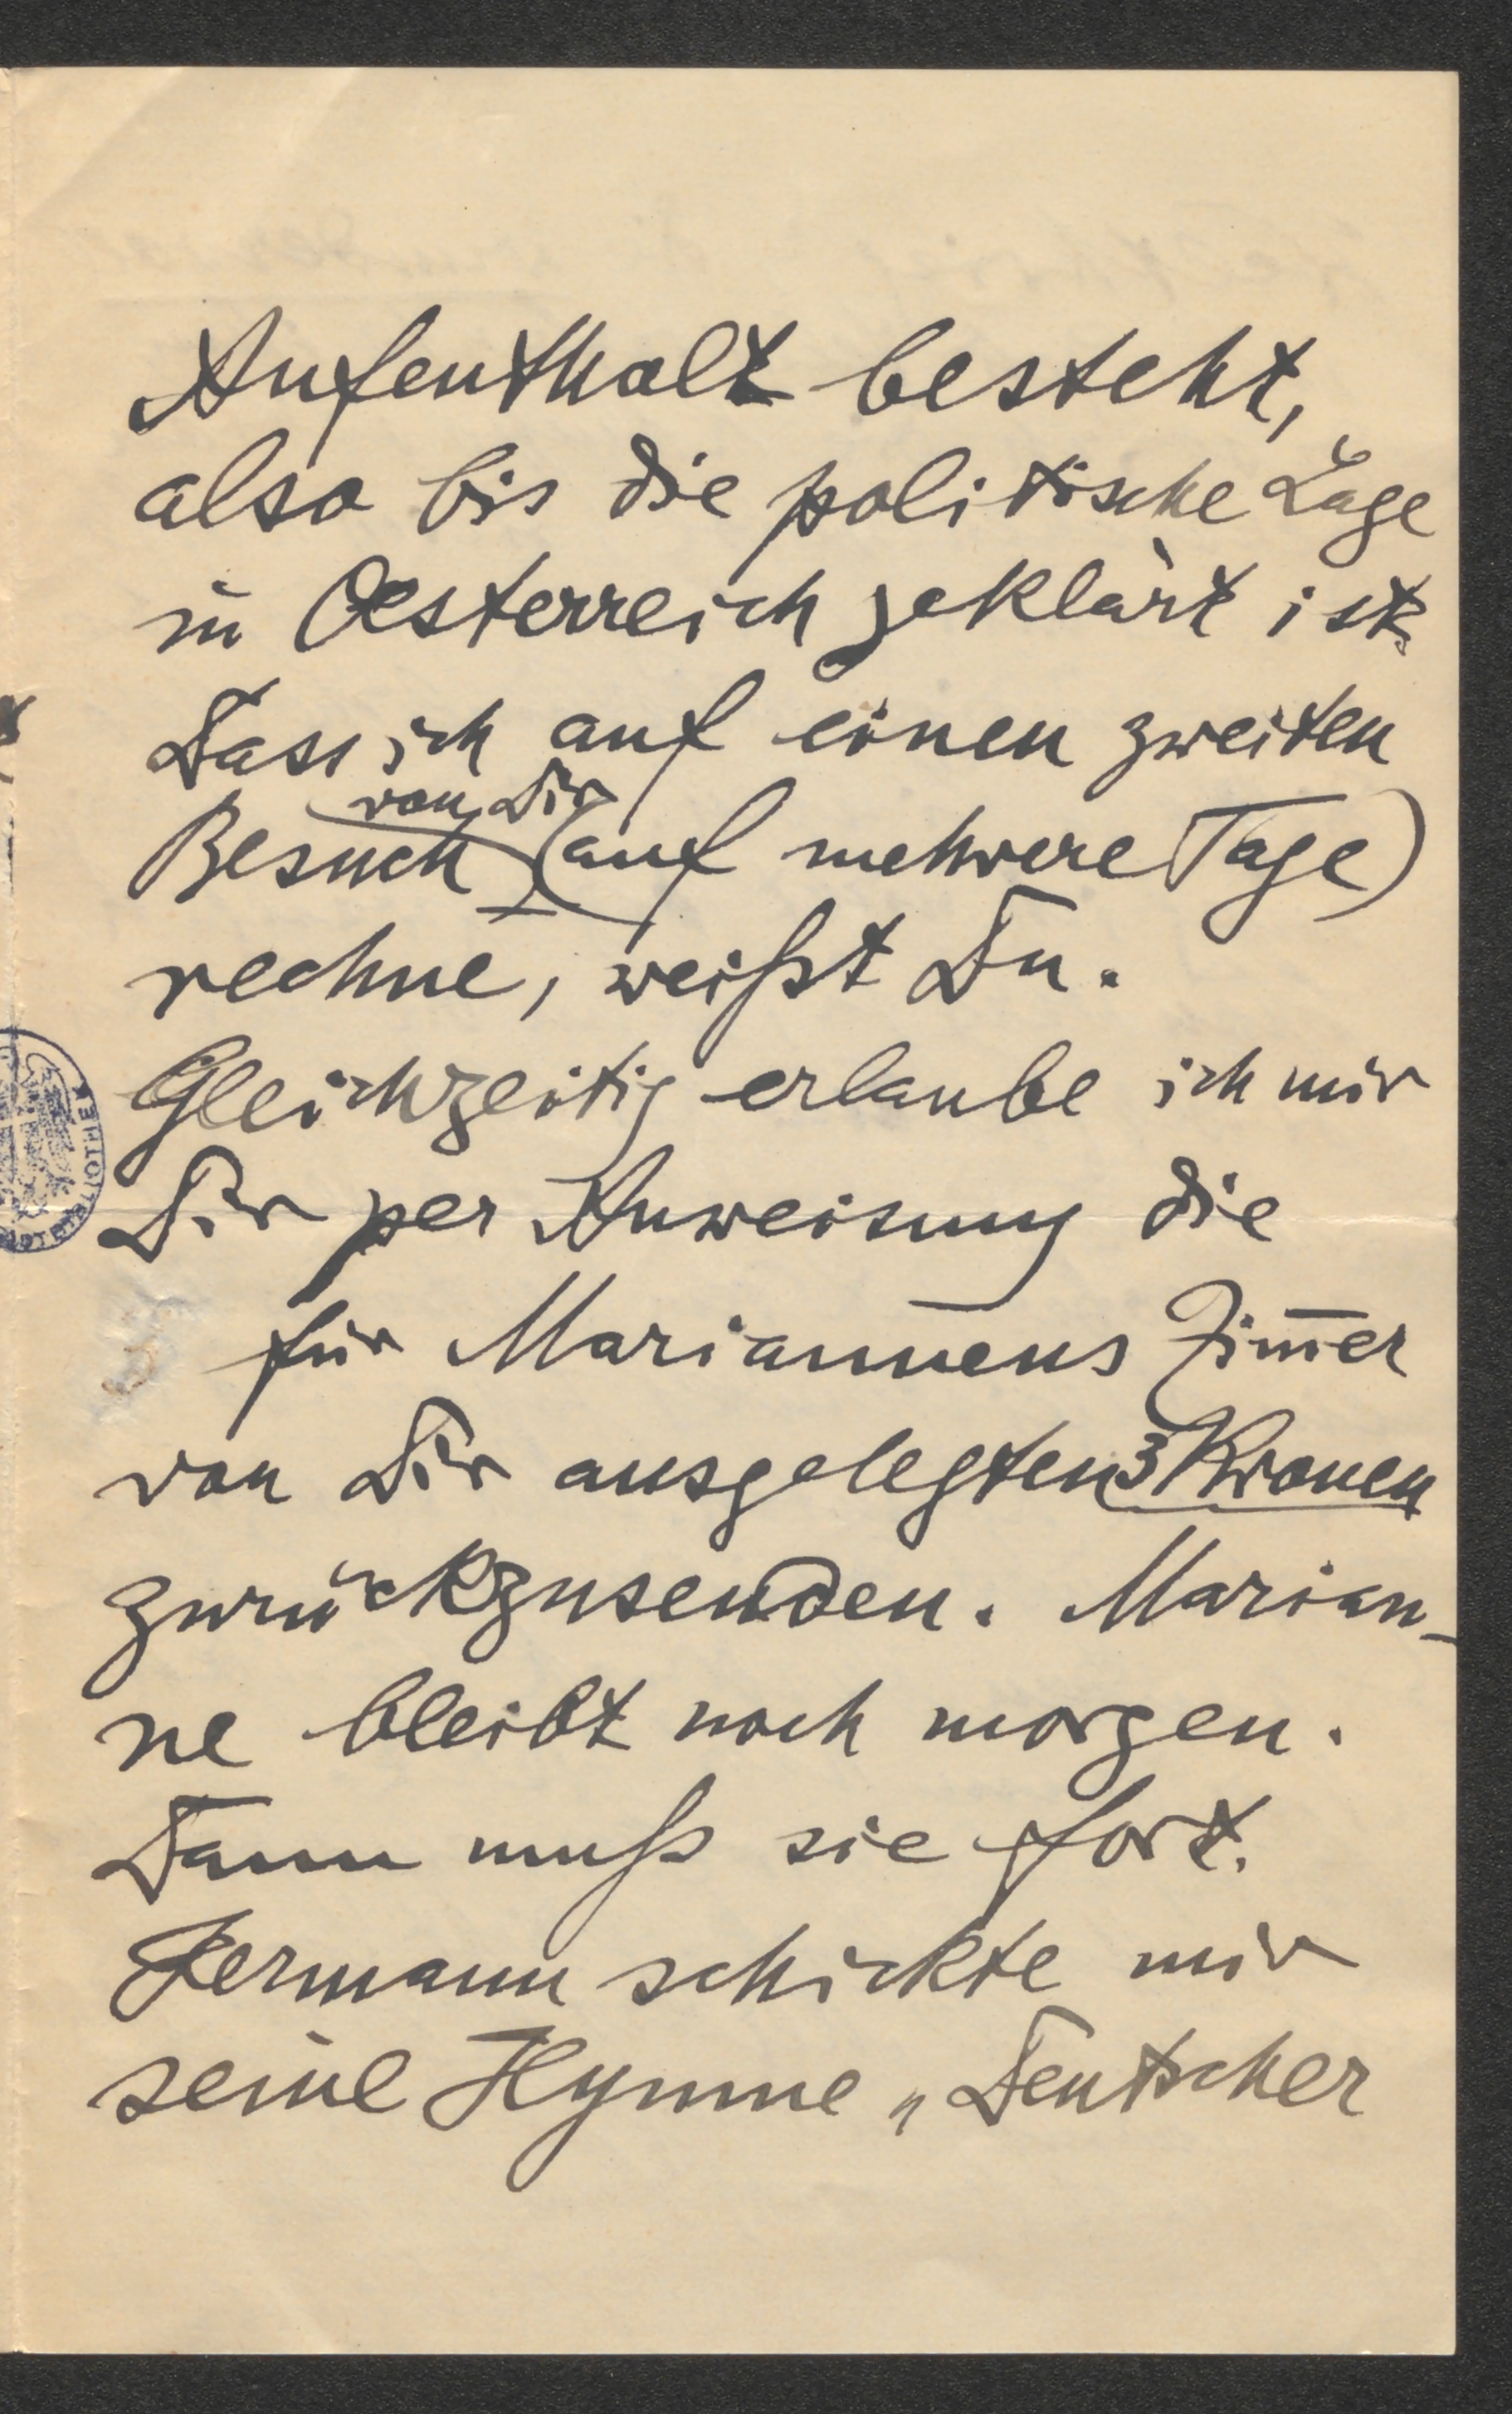 Aufenthalt besteht,
also bis die politische Lage
in Oesterreich geklärt ist.
Dass ich auf einen zweiten
von Dir
Besuch (auf mehrere Tage)
rechne, weißt Du.
Gleichzeitig erlaube ich mir
Dir per Anweisung die
für Mariannens Zim̅er
von Dir ausgelegten 3 Kronen
zurückzusenden. Marian-
ne bleibt noch morgen.
Dann muß sie fort.
Hermann schickte mir
seine Hymne „Deutscher